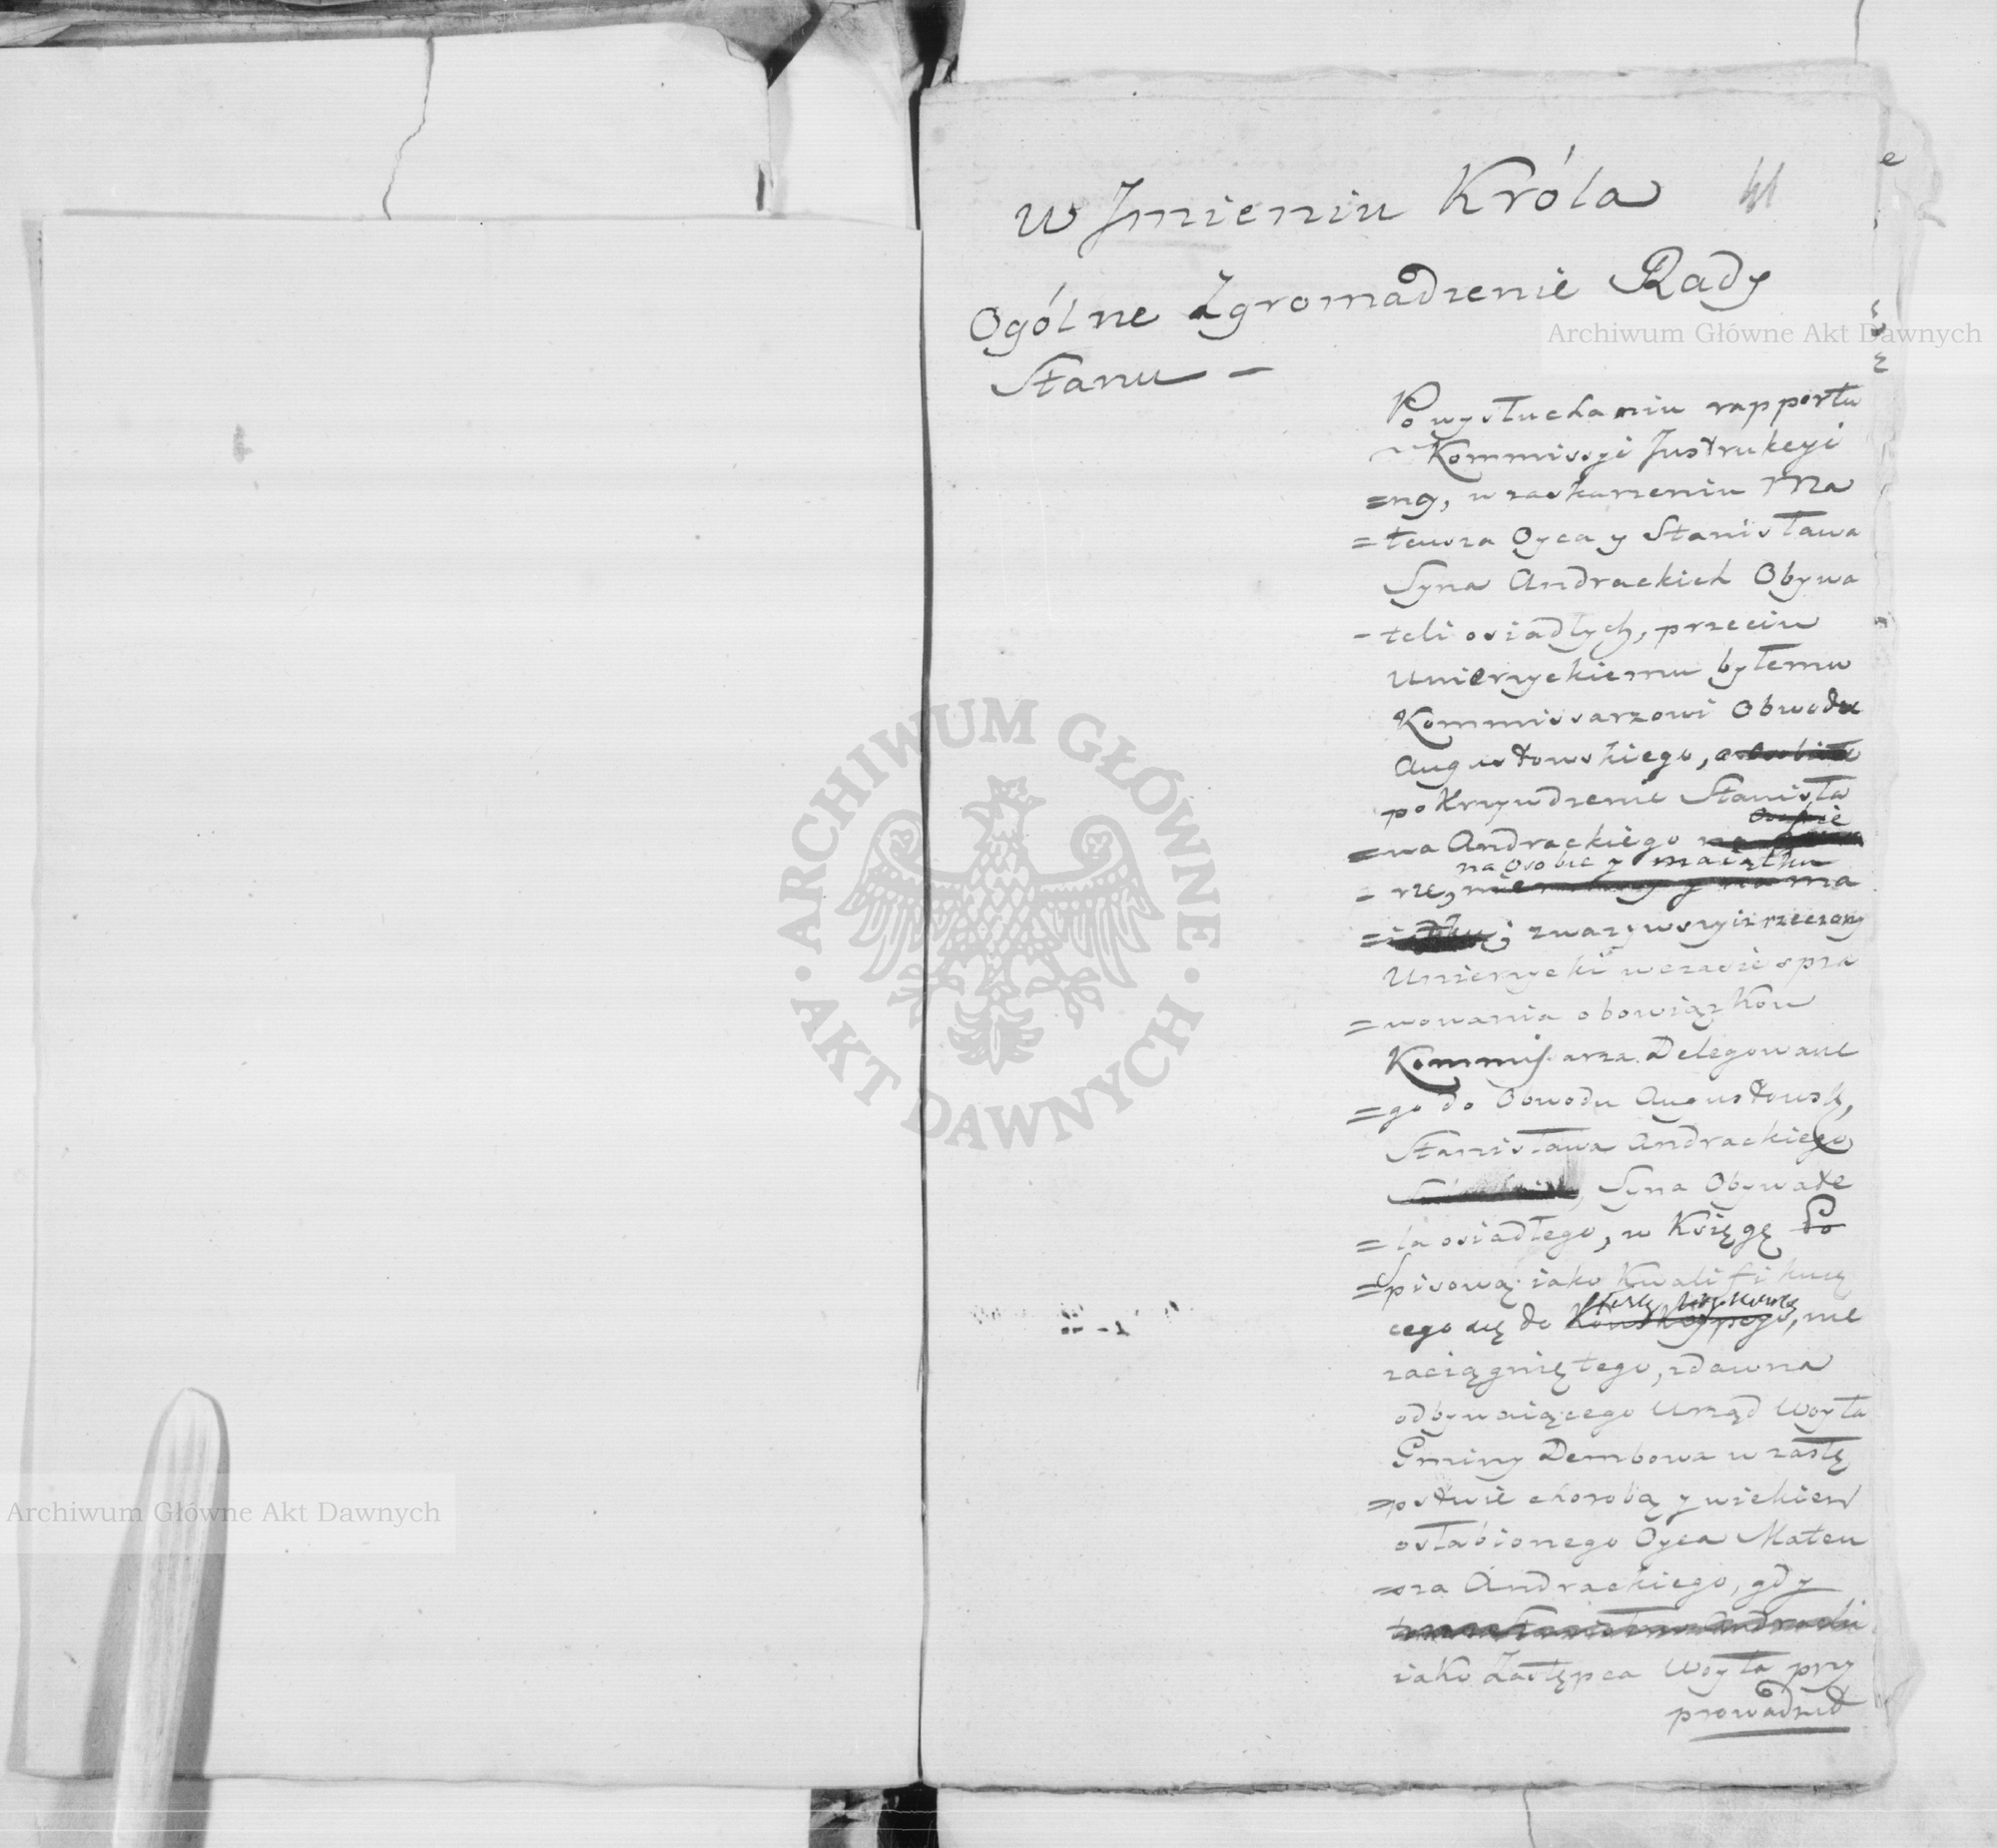 41
W Jmieniu Króla
Ogólne Zgromadzenie Rady
Stanu –
Po wysłuchaniu rapportu
Kommissyi Jnstrukcyi
=ny, w zaskarzeniu Ma
=teusza Oyca y Stanisława
Syna Andrackich Obywa
-teli osiadłych, przeciw
Unierzyckiemu byłemu
Kommissarzowi Obwodu
Augustowskiego, o
pokrzywdzenie Stanisła
Osobie
=wa Andrackiego na
na Osobie y maiątku
y na ma
zwazywszy iz rzeczony
Unierzycki w czasie spra
=wowania obowiązków
Kommissarza Delegowane
=go do Obwodu Augustowsk,
Stanisława Andrackiego
, Syna Obywate
=la osiadłego, w Księgę Po
=Spisową iako Kwalifikuią
cego się do, nie
zaciągniętego, zdawna
odbywaiącego Urząd Woyta
Gminy Dembowa w zastę
=pstwie chorobą y wiekiem
osłabionego Oyca Mateu
=sza Andrackiego, gdy
iako Zastępca Woyta przy
prowadził
Archiwum Główne Akt Dawnych
ARCHIWUM GŁÓWNE · AKT DAWNYCH ·
Archiwum Główne Akt Dawnych